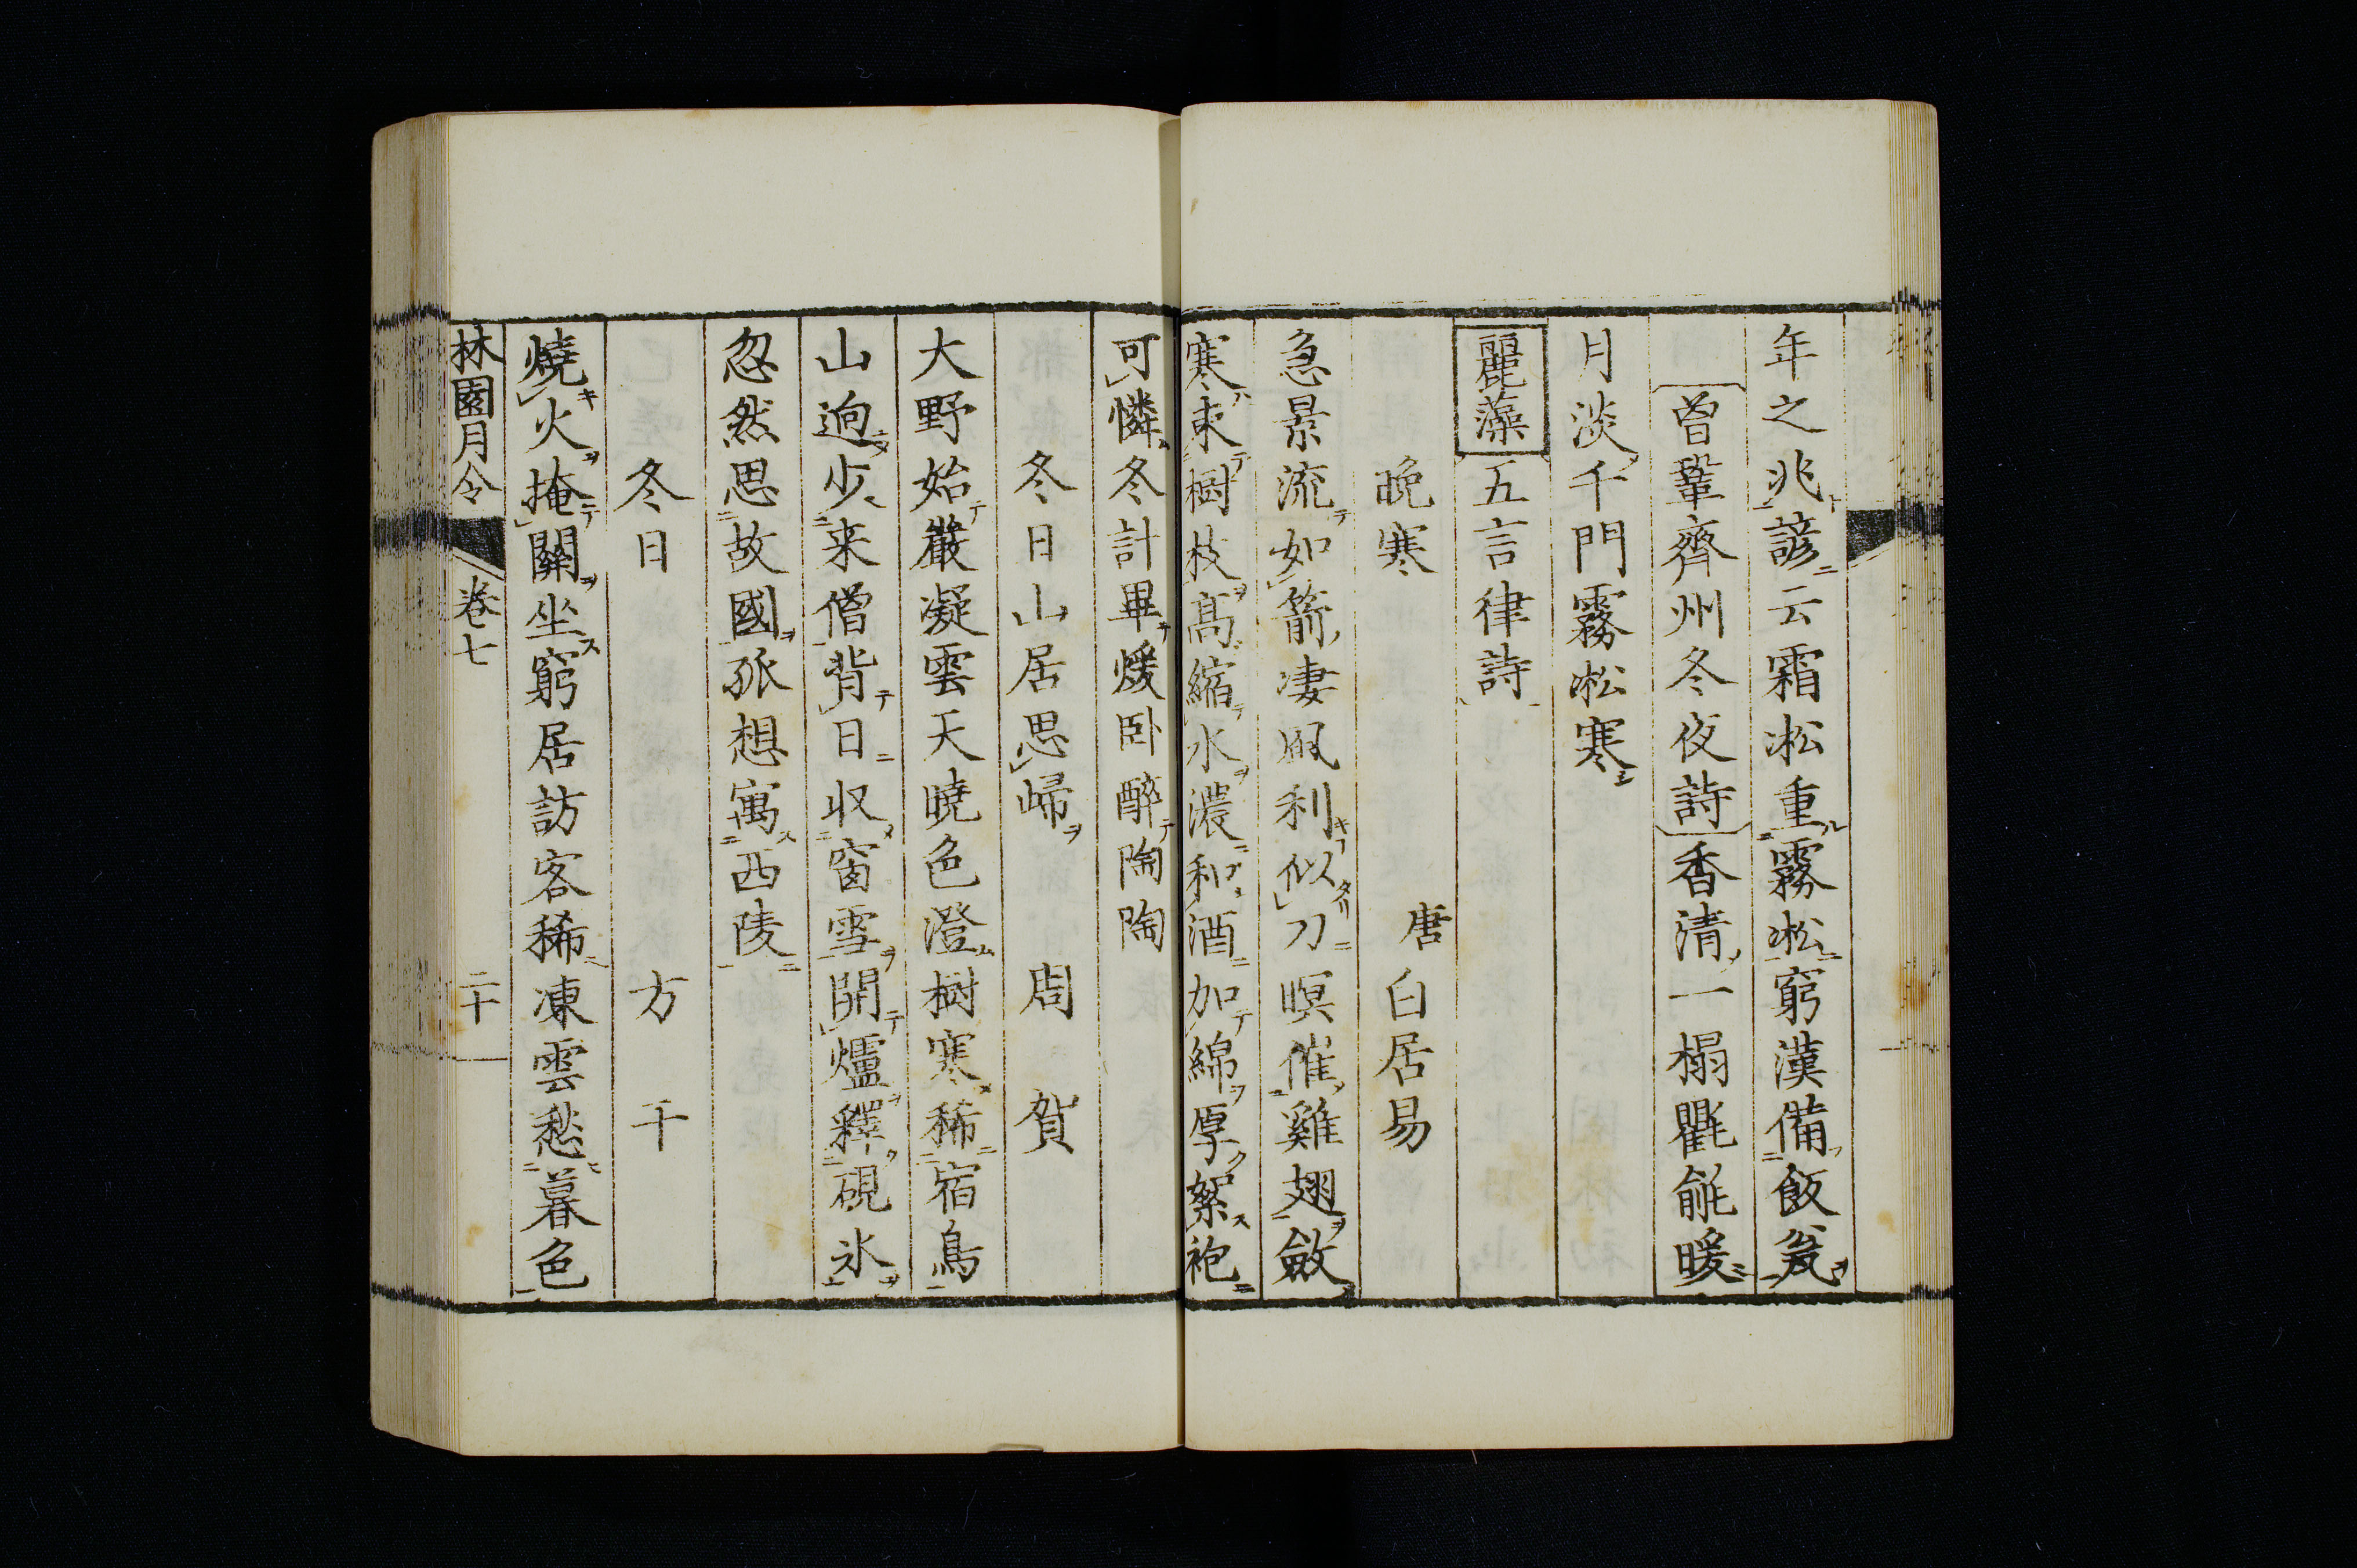 年之兆諺云霜凇重霧凇窮漢備飯瓮
曾鞏齊州冬夜詩香清一榻氍毹暖
月淡千門霧凇寒
麗藻五言律詩
晚寒 唐白居易
急景流如箭凄風利似刀暝催雞翅斂
寒束樹枝高縮水濃和酒加綿厚絮袍
可憐冬計畢煖卧醉陶陶
冬日山居思歸 周賀
大野始嚴凝雲天曉色澄樹寒稀宿鳥
山逈少来僧背日収窗雪開爐釋硯氷
忽然思故國孤想寓西陵
冬日 方干
燒火掩關坐窮居訪客稀凍雲愁暮色
林園月令 卷七 二十